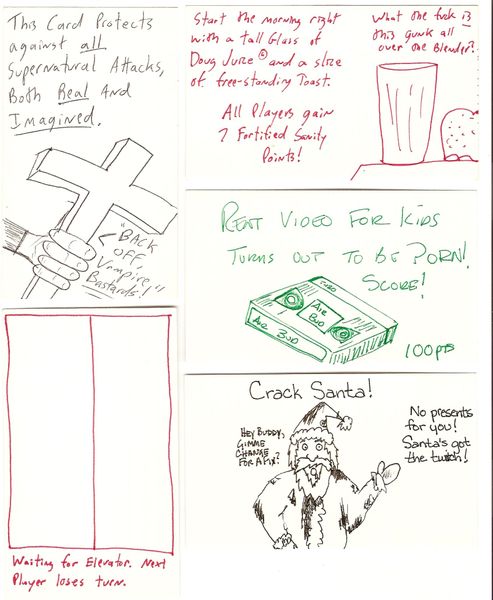 This Card Protects
against all
Supernatural Attacks,
Both Real And
Imagined.
"BACK
OFF
Vampire
Bastards!"
Start the morning right
with a tall Glass of
Doug Juice © and a slice
of free-standing Toast.
All Players gain
7 Fortified Sanity
Points!
What the fuck is
this gunk all
over the Blender?!
RENT VIDEO FOR KIDS
TURNS OUT TO BE PORN!
SCORE!
AIR
BUD
AIR BUD
100 pts
Crack Santa!
HEY BUDDY,
GIMME
CHANGE
FOR A FIX?
No presents
for you!
Santa's got
the twitch!
Waiting for Elevator. Next
Player loses turn.